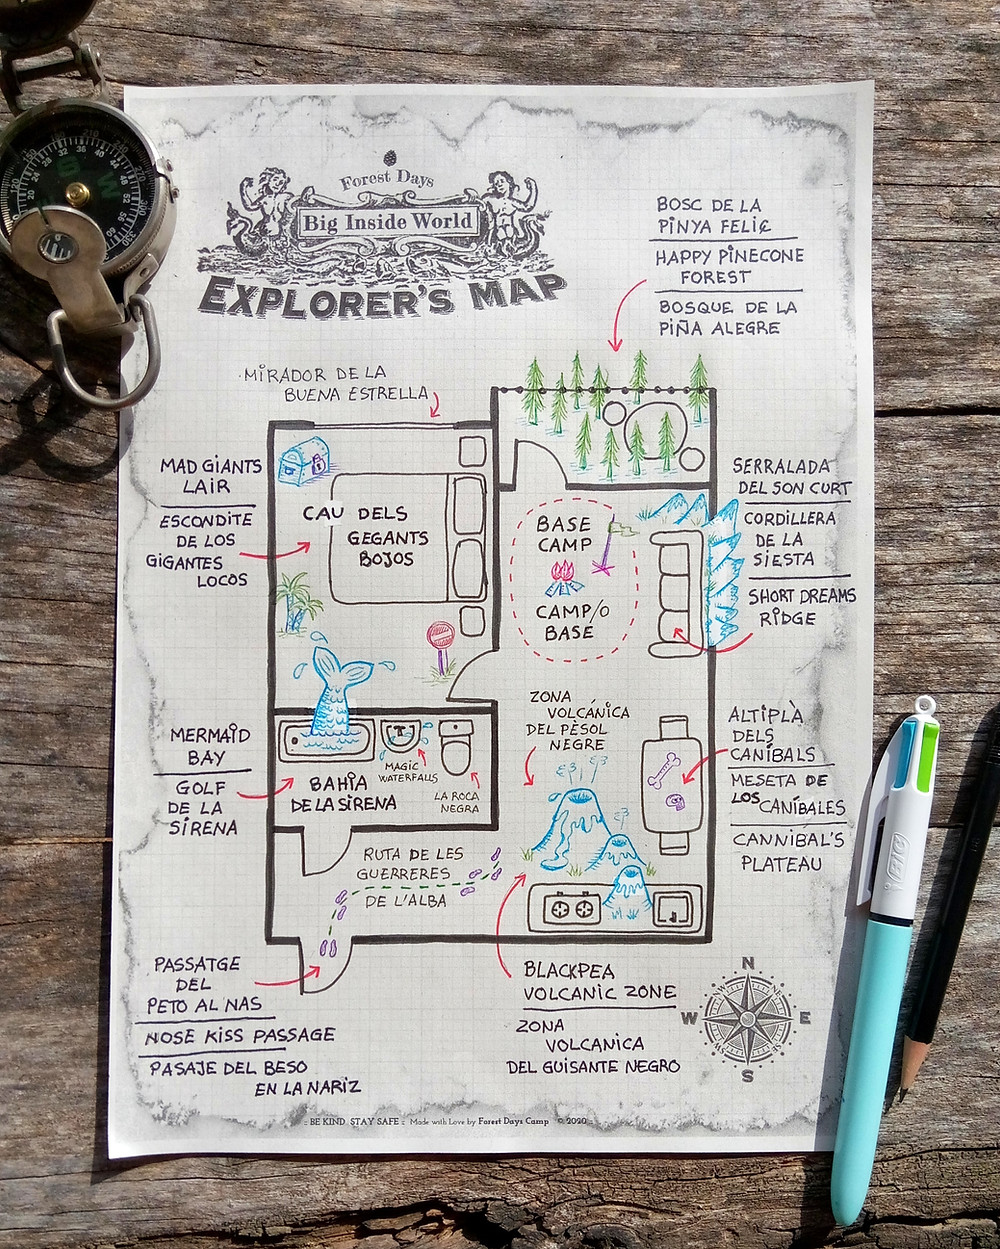 Forest Days
Big Inside World
EXPLORER'S MAP
BOSC DE LA
PINYA FELIÇ
HAPPY PINECONE
FOREST
BOSQUE DE LA
PIÑA ALEGRE
MIRADOR DE LA
BUENA ESTRELLA
MAD GIANTS
LAIR
ESCONDITE
DE LOS
GIGANTES
LOCOS
CAU DELS
GEGANTS
BOJOS
BASE
CAMP
CAMP/O
BASE
SERRALADA
DEL SON CURT
CORDILLERA
DE LA
SIESTA
SHORT DREAMS
RIDGE
ZONA
VOLCÁNICA
DEL PÈSOL
NEGRE
MERMAID
BAY
GOLF
DE LA
SIRENA
BAHÍA
DE LA SIRENA
MAGIC
WATERFALLS
LA ROCA
NEGRA
ALTIPLÀ
DELS
CANÍBALS
MESETA DE
LOS CANÍBALES
CANNIBAL'S
PLATEAU
RUTA DE LES
GUERRERES
DE L'ALBA
PASSATGE
DEL
PETO AL NAS
NOSE KISS PASSAGE
PASAJE DEL BESO
EN LA NARIZ
BLACKPEA
VOLCANIC ZONE
ZONA
VOLCANICA
DEL GUISANTE NEGRO
N
W
E
S
NW
NE
SW
SE
:: BE KIND STAY SAFE :: Made with Love by Forest Days Camp © 2020 ::
BIC